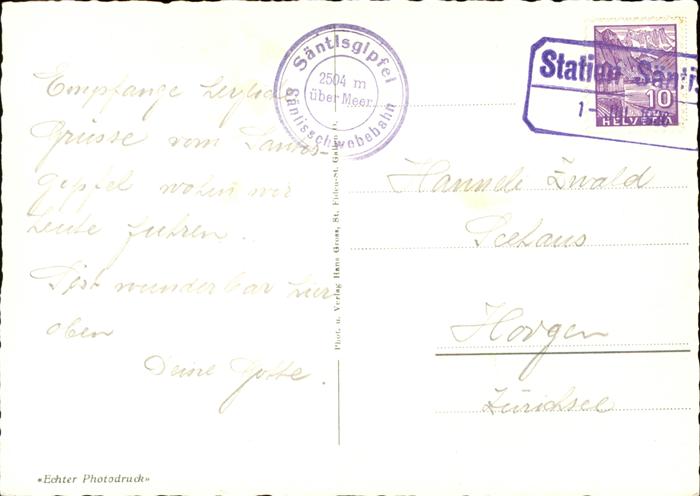 Empfange herzliche
Grüsse vom Säntis-
gipfel wohin wir
heute fuhren.
S'ist wunderbar hier
oben
Deine Gotte.
Säntisgipfel
2504 m
über Meer
Säntisschwebebahn
Phot. u. Verlag Hans Gross, St. Fiden-St. Gallen
Station Säntis
1-
10
HELVETIA
Hannele Zwald
Seehaus
Horgen
Zürichsee
«Echter Photodruck»